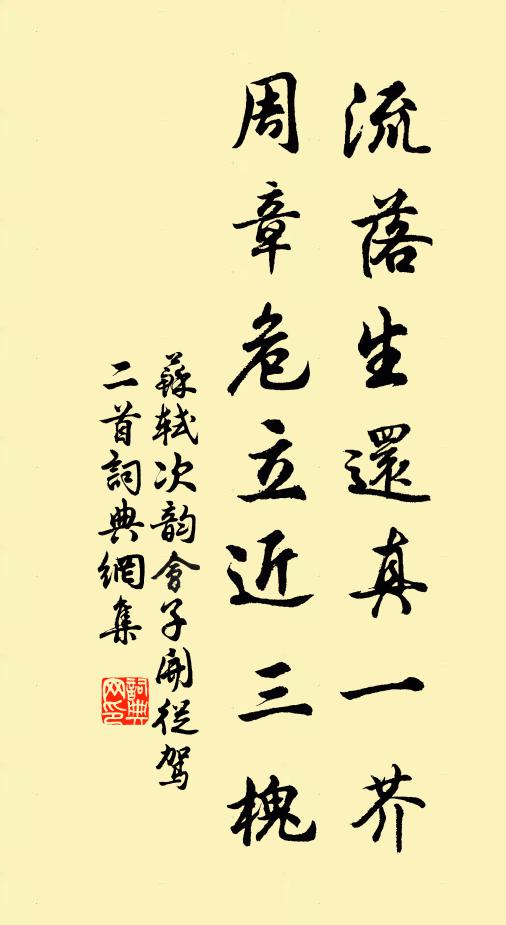 流落生還真一芥
周章危立近三槐
蘇軾次韵會子開從駕
二首詞典網集
詞典
网印